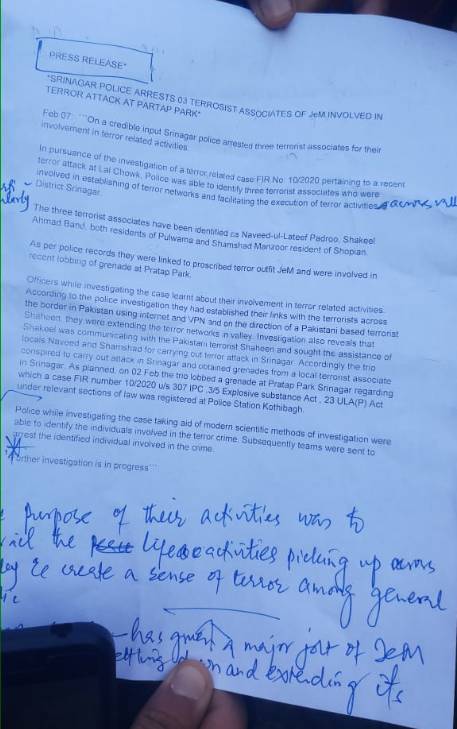 PRESS RELEASE"
"SRINAGAR POLICE ARRESTS 03 TERROSIST ASSOCIATES OF JeM INVOLVED IN
TERROR ATTACK AT PARTAP PARK"
Feb 07: "On a credible input Srinagar police arrested three terrorist associates for their
involvement in terror related activities.
In pursuance of the investigation of a terror related case FIR No. 10/2020 pertaining to a recent
terror attack at Lal Chowk, Police was able to identify three terrorist associates who were
involved in establishing of terror networks and facilitating the execution of terror activities across
District Srinagar.
The three terrorist associates have been identified as Naveed-ul-Lateef Padroo, Shakeel
Ahmad Band, both residents of Pulwama and Shamshad Manzoor resident of Shopian.
As per police records they were linked to proscribed terror outfit JeM and were involved in
recent lobbing of grenade at Pratap Park.
Officers while investigating the case learnt about their involvement in terror related activities.
According to the police investigation they had established their links with the terrorists across
the border in Pakistan using internet and VPN and on the direction of a Pakistani based terrorist
Shaheen, they were extending the terror networks in valley. Investigation also reveals that
Shakeel was communicating with the Pakistani terrorist Shaheen and sought the assistance of
locals Naveed and Shamshad for carrying out terror attack in Srinagar. Accordingly the trio
conspired to carry out attack in Srinagar and obtained grenades from a local terrorist associate
in Srinagar. As planned, on 02 Feb the trio lobbed a grenade at Pratap Park Srinagar regarding
which a case FIR number 10/2020 u/s 307 IPC ,3/5 Explosive substance Act , 23 ULA(P) Act
under relevant sections of law was registered at Police Station Kothibagh.
Police while investigating the case taking aid of modern scientific methods of investigation were
able to identify the individuals involved in the terror crime. Subsequently teams were sent to
arrest the identified individual involved in the crime.
Further investigation is in progress"
purpose of their activities was to
the life activities picking up across
create a sense of terror among general
has given a major jolt of JeM
and extending its